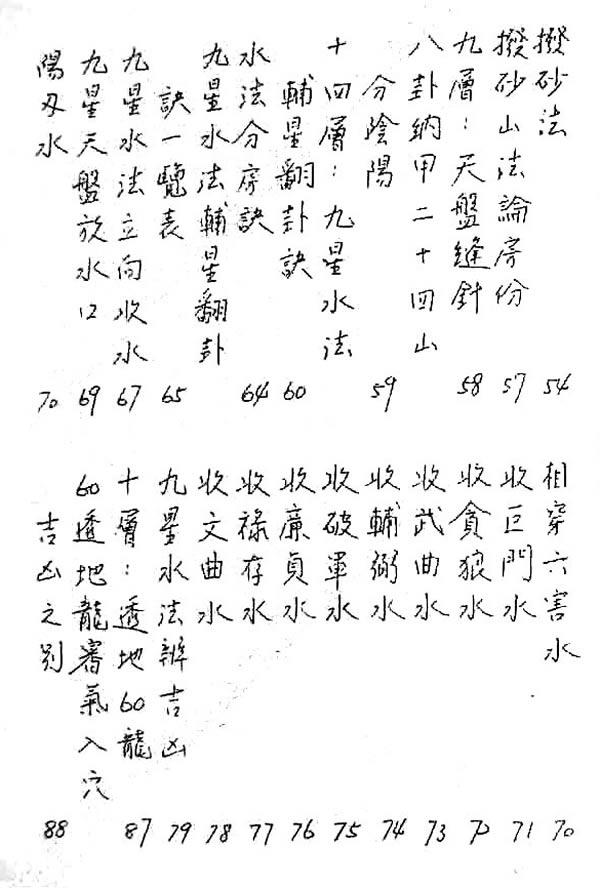 撥砂法 54
撥砂山法論房份 57
九層：天盤縫針 58
八卦納甲二十四山
分陰陽 59
十四層：九星水法
輔星翻卦訣 60
水法分房訣 64
九星水法輔星翻卦
訣一覽表 65
九星水法立向收水 67
九星天盤放水口 69
陽刃水 70
相穿六害水 70
收巨門水 71
收貪狼水 72
收武曲水 73
收輔弼水 74
收破軍水 75
收廉貞水 76
收祿存水 77
收文曲水 78
九星水法辨吉凶 79
十層：透地60龍 87
60透地龍審氣入穴
吉凶之別 88